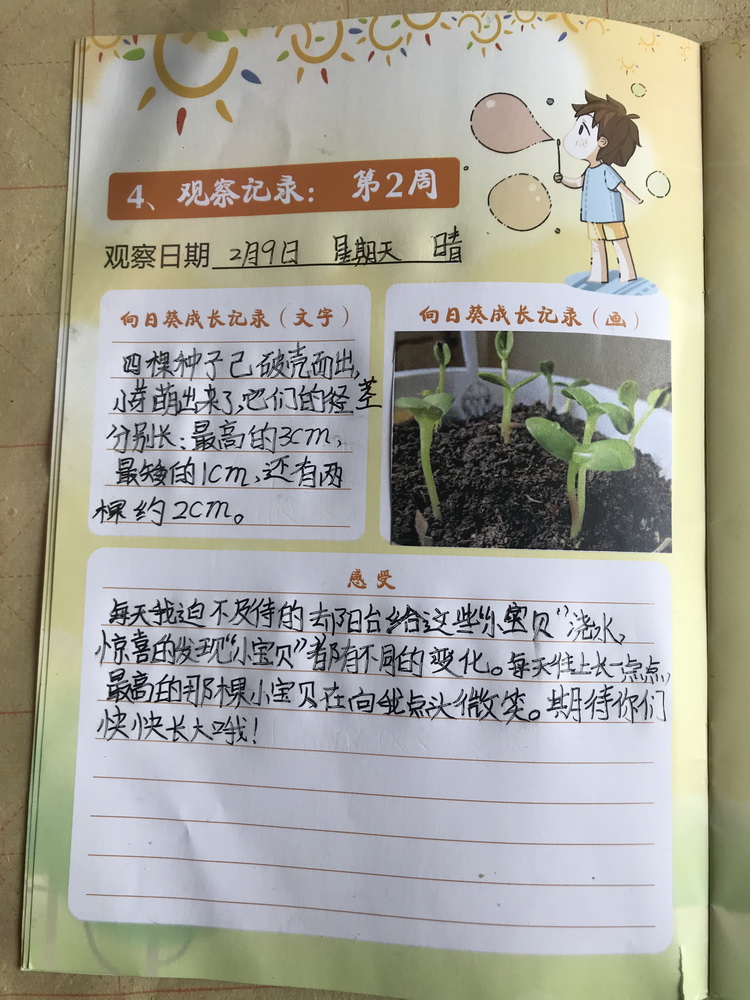 4、观察记录： 第2周
观察日期 2月9日 星期天 晴
向日葵成长记录（文字）
四棵种子已破壳而出，
小芽萌出来了，它们的经茎
分别长：最高的3cm、
最矮的1cm、还有两
棵约2cm。
向日葵成长记录（画）
感受
每天我迫不及待的去阳台给这些“小宝贝”浇水，
惊喜的发现“小宝贝”都有不同的变化。每天往上长一点点，
最高的那棵小宝贝在向我点头微笑。期待你们
快快长大哦！